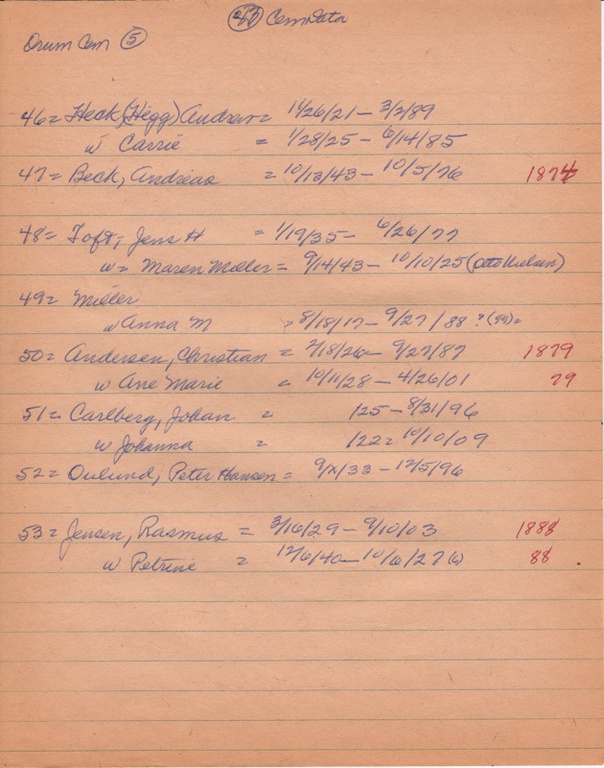 Cem Data
Drum Cem (5)
46 = Heck (Hegg) Andrew = 11/26/21 - 3/2/89
w Carrie = 1/28/25 - 6/14/85
47 = Beck, Andreas = 10/13/43 - 10/5/76 1874
48 = Toft, Jens H = 1/19/35 - 6/26/77
w = Maren Moeller = 9/14/43 - 10/10/25 (Otto Nielsen)
49 = Miller
w Anna M = 8/18/17 - 9/27/88 ? (99) =
50 = Andersen, Christian = 2/18/26 - 9/27/87 1879
w Ane Marie = 10/11/28 - 4/26/01 79
51 = Carlberg, Johan = /25 - 8/31/96
w Johanna = /22 = 10/10/09
52 = Oulund, Peter Hansen = 9/x/33 - 12/5/96
53 = Jensen, Rasmus = 3/16/29 - 9/10/03 1888
w Petrine = 12/6/40 - 10/6/27 (6) 88